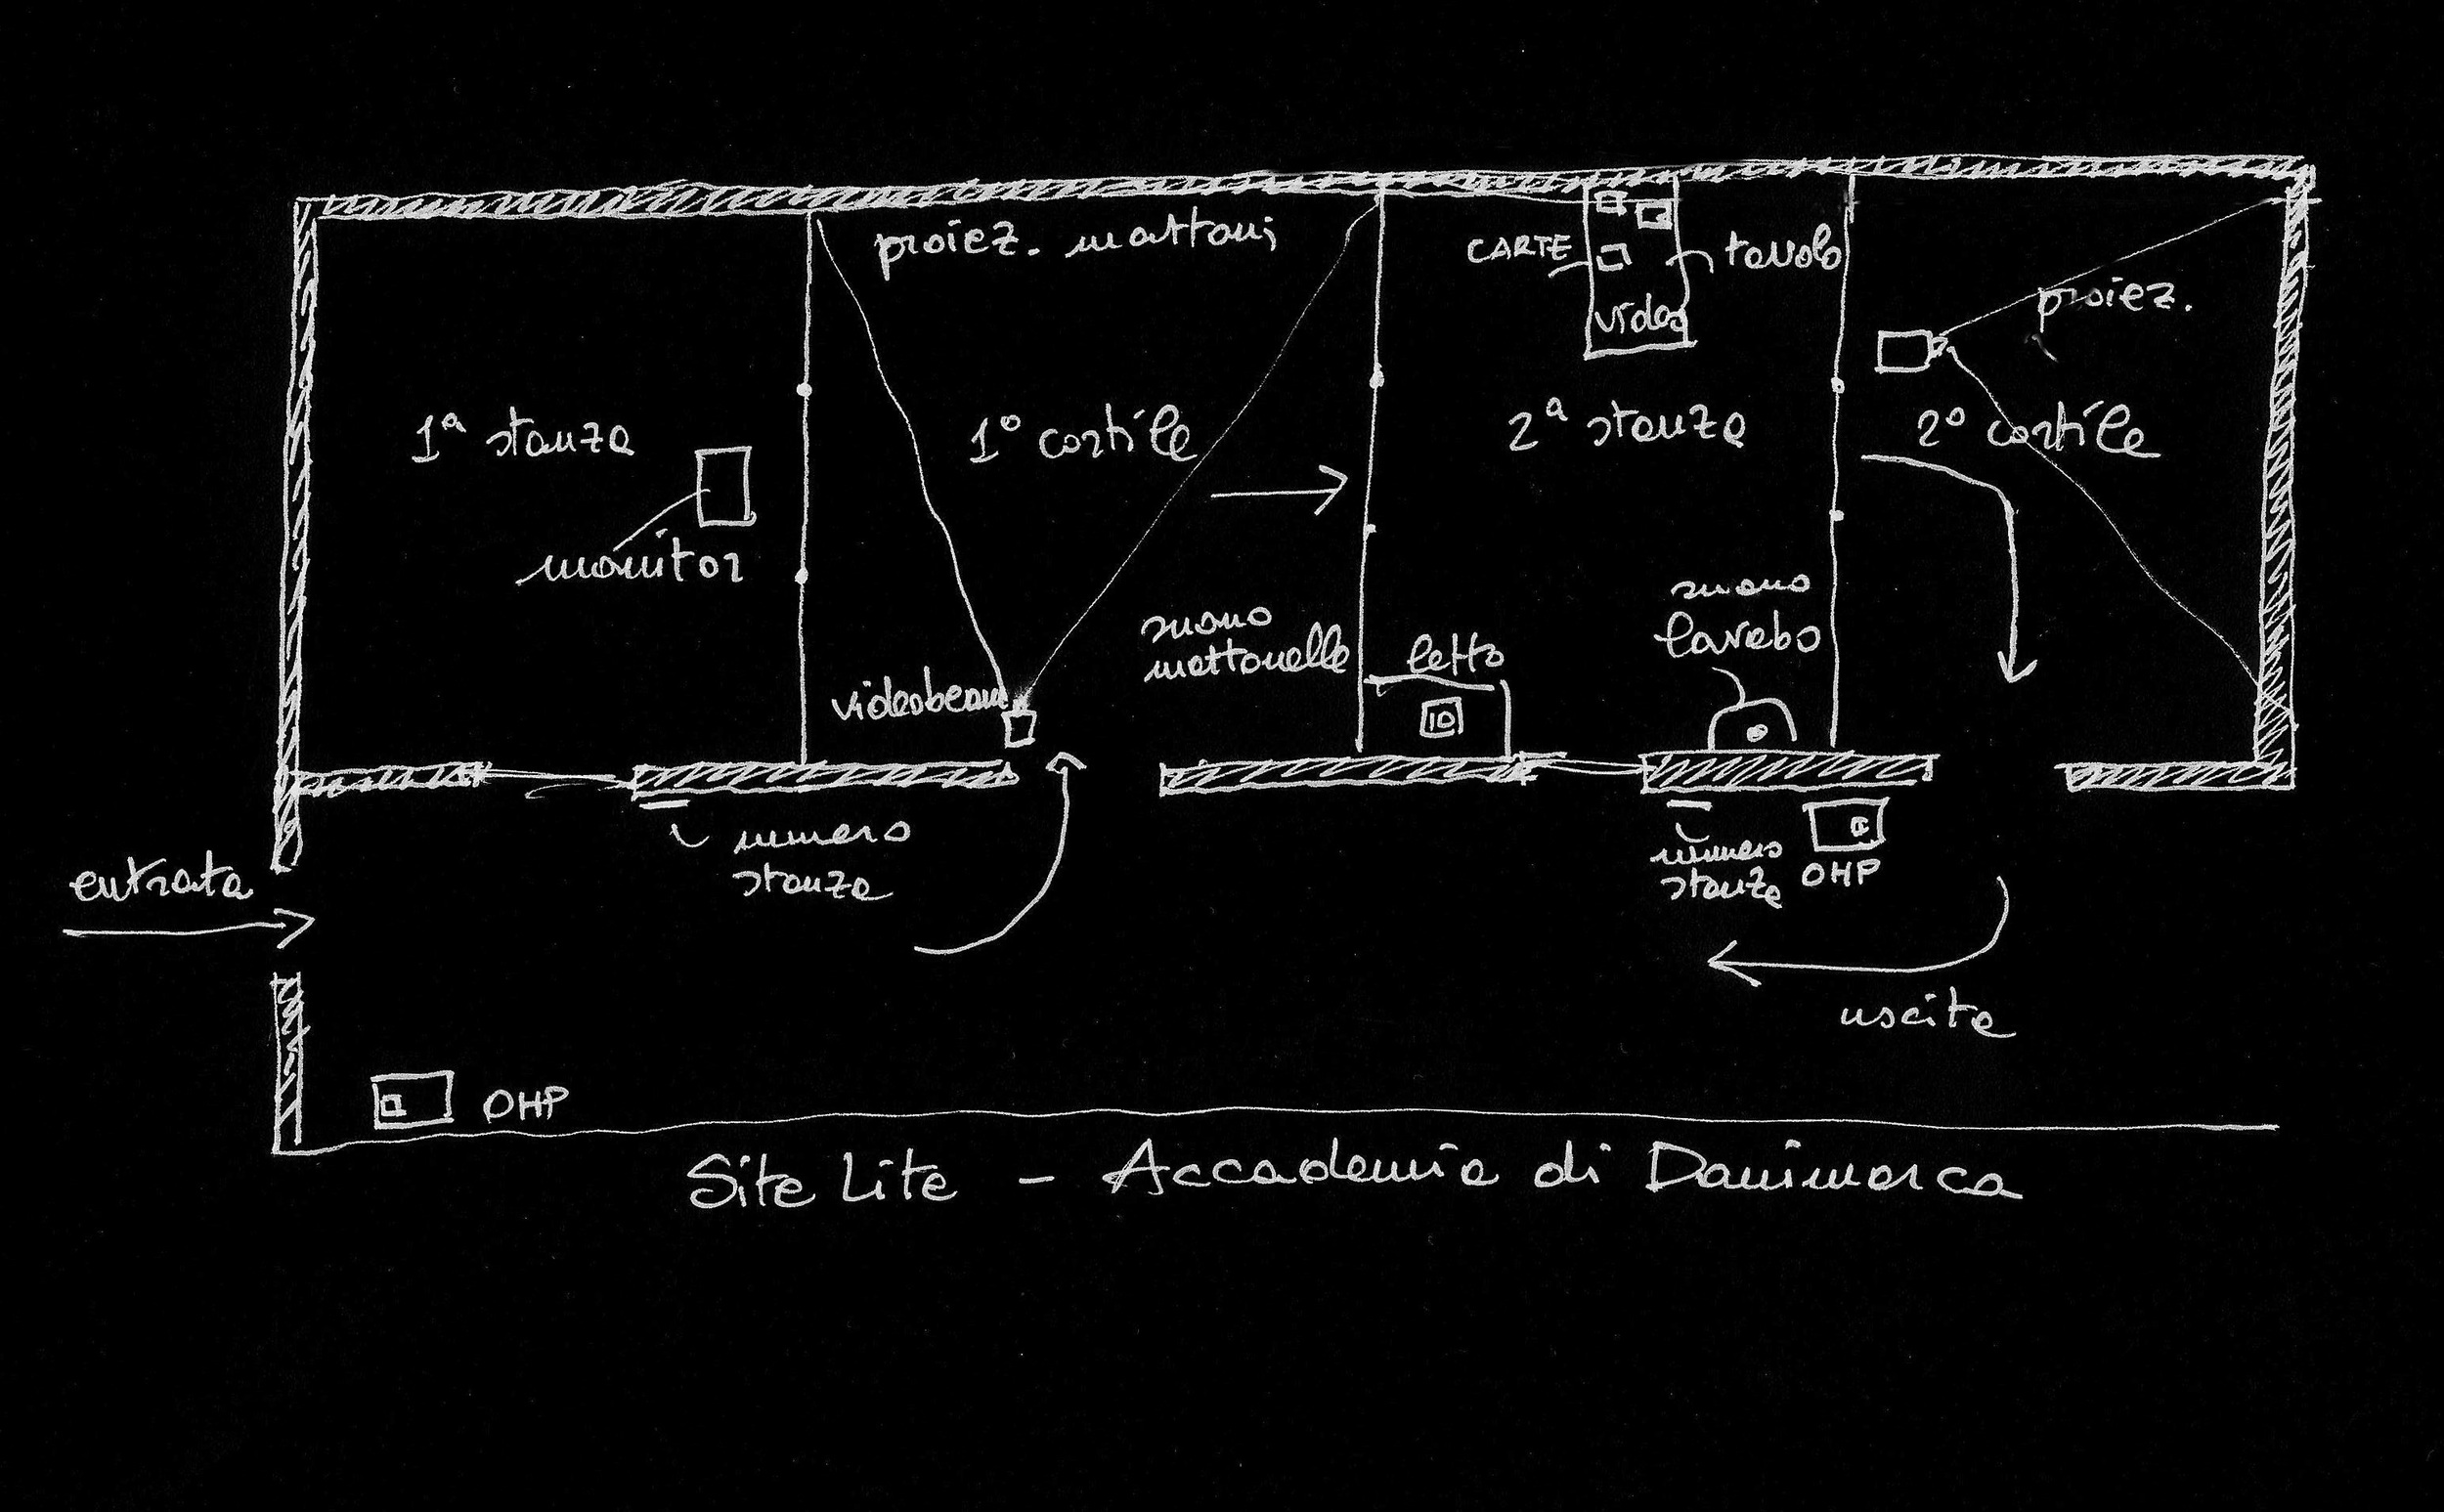 proiez. mattoni
CARTE
tavolo
video
proiez.
1ª stanza
1º cortile
2ª stanza
2º cortile
monitor
suono
mattonelle
suono
lavabo
letto
videobeam
numero
stanza
numero
stanza
OHP
entrata
uscita
OHP
Site Lite - Accademia di Danimarca